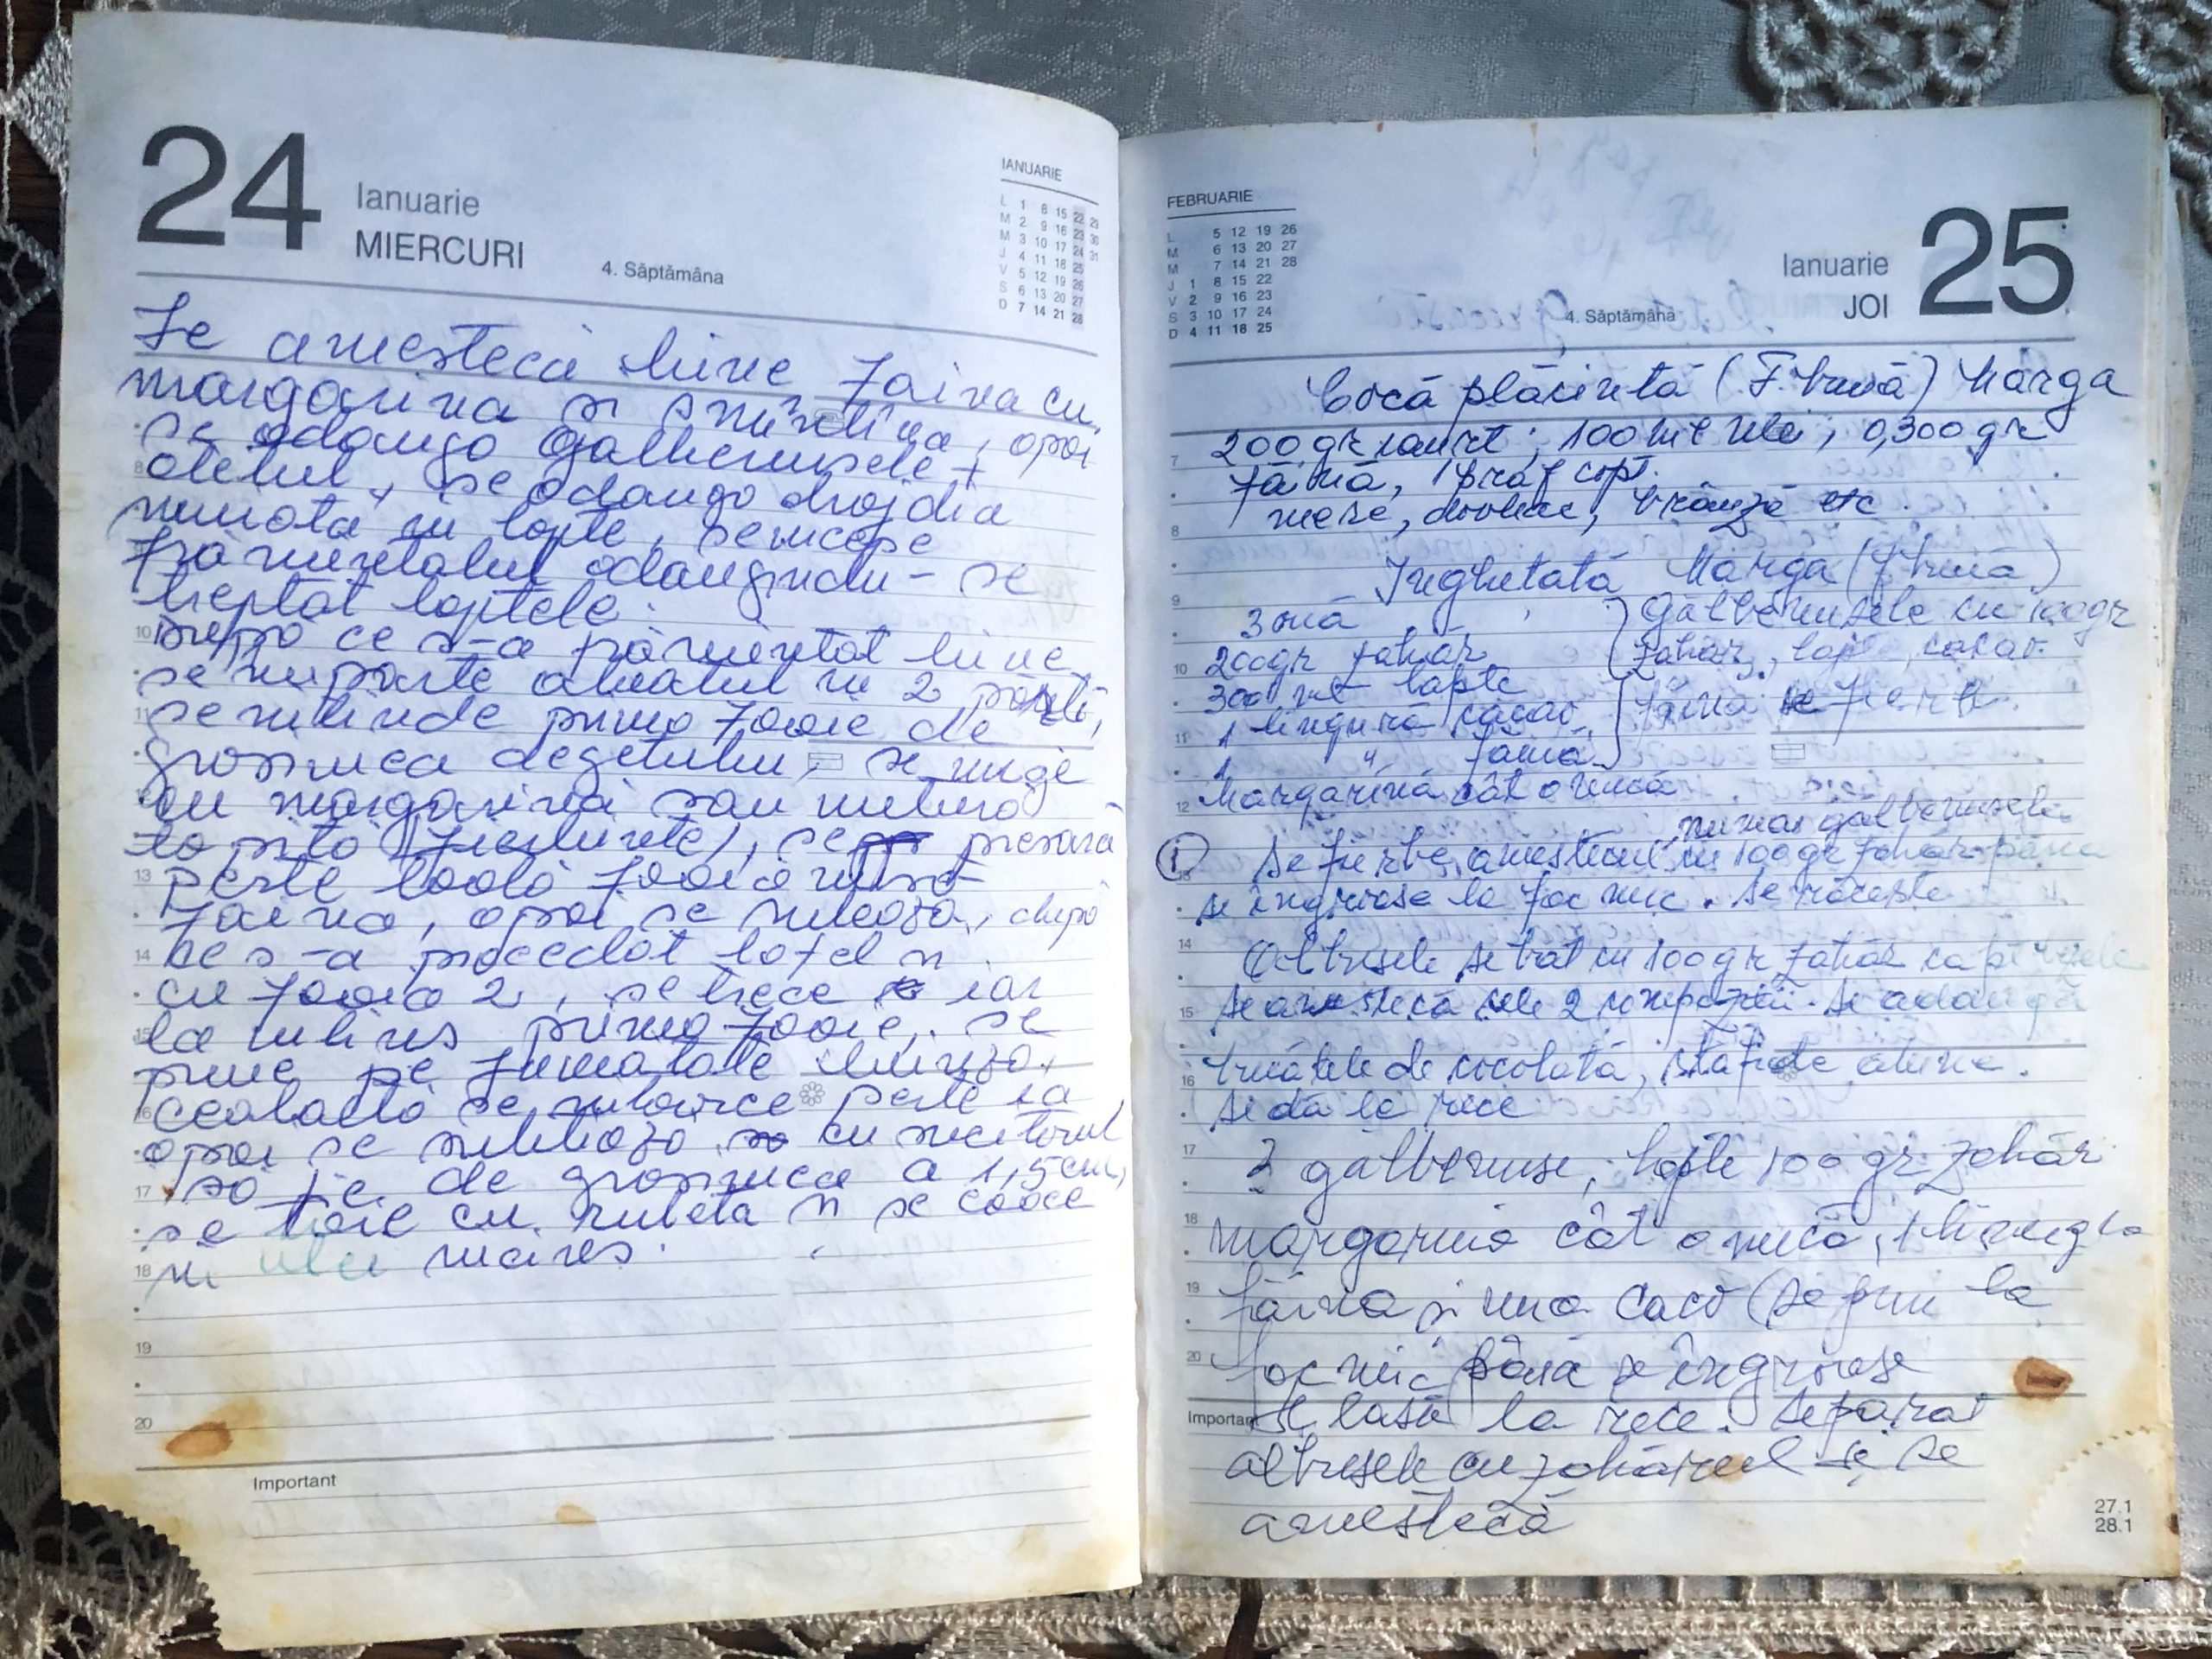 24
Ianuarie
MIERCURI
4. Săptămâna
IANUARIE
L 1 8 15 22 29
M 2 9 16 23 30
M 3 10 17 24 31
J 4 11 18 25
V 5 12 19 26
S 6 13 20 27
D 7 14 21 28
Se amestecă bine făina cu
margarina și smîntîna, apoi
se adaugă gălbenușele +
oțetul, se adaugă drojdia
muiată în lapte, se începe
frămîntatul adăugîndu-se
treptat laptele.
După ce s-a frămîntat bine
se împarte aluatul în 2 părți,
se întinde prima foaie de
grosimea degetului, se unge
cu margarină sau untură
topită (fierbinte), se presară
peste toată foaia
făina, apoi se rulează, după
ce s-a procedat la fel și
cu foaia 2, se trece iar
la întins prima foaie, se
pune pe jumătate brînza,
cealaltă se întoarce peste ea
apoi se subțiază cu sucitorul
să fie de grosimea a 1,5 cm,
se taie cu ruleta și se coace
în ulei încins.
10
11
13
14
15
16
17
18
19
20
Important
FEBRUARIE
L 5 12 19 26
M 6 13 20 27
M 7 14 21 28
J 1 8 15 22
V 2 9 16 23
S 3 10 17 24
D 4 11 18 25
4. Săptămâna
Ianuarie
JOI
25
Cocă plăcintă (F. bună) Marga
7 200 gr iaurt; 100 ml ulei; 0,300 gr
făină, 1 praf copt.
8 mere, dovleac, brânză etc.
Inghetată Marga (f bună)
9 3 ouă } Gălbenusele cu 100gr
10 200gr zahăr zahăr, lapte, cacao
300 ml lapte făina se fierb.
11 1 lingură cacao
1 " făină
12 Margarină cât o nucă
numai gălbenusele
1 Se fierbe amestecul cu 100 gr zahăr până
13
se îngroase la foc mic. Se răceste
14 Albusele se bat cu 100 gr zahăr
15 Se amestecă cele 2 compoziții. Se adaugă
16 bucătele de ciocolată, stafide alune.
Se dă la rece
17 3 gălbenuse, lapte 100 gr zahăr
18 margarină cât o nucă, 1
19 făină și una cacao (se pun la
20 foc mic până se îngroase
Important
se lasă la rece. Separat
albusele cu zahărul și se
amestecă
27.1
28.1